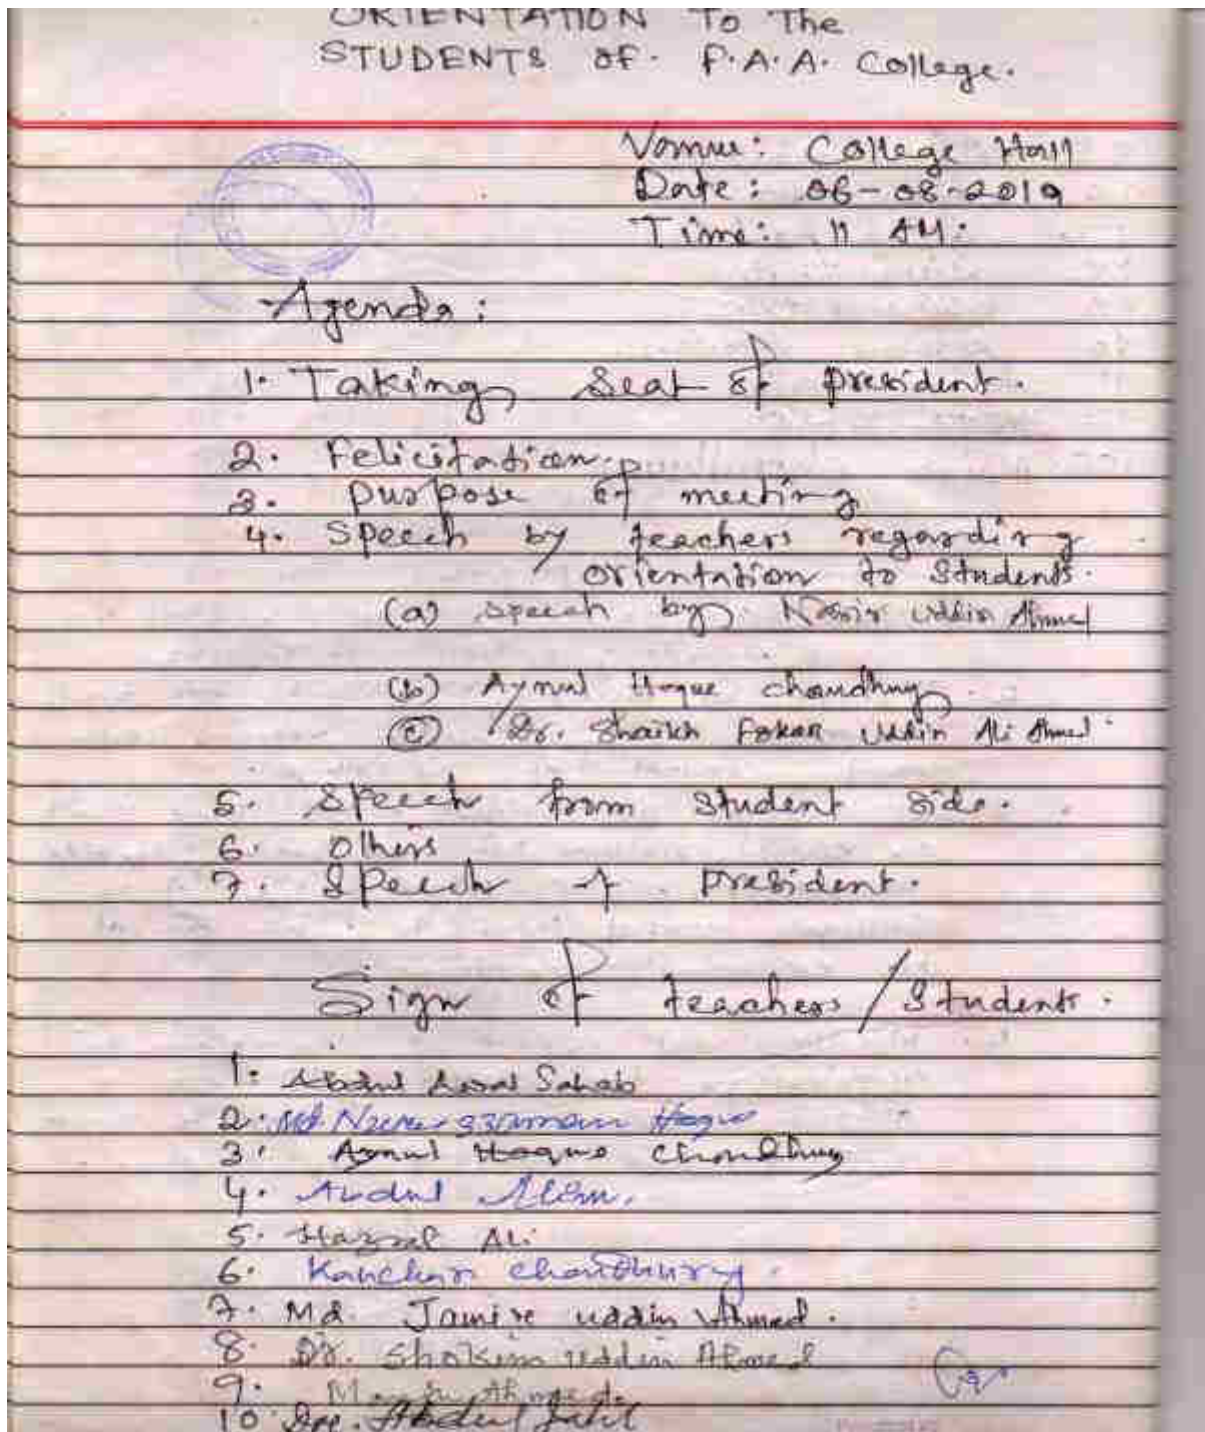 ORIENTATION To The
STUDENTS OF. F.A.A. College.
Vanue: College Hall
Date: 06-08-2019
Time: 11 AM.
Agenda:
1. Taking Seat of president.
2. Felicitation.
3. purpose of meeting
4. Speech by teachers regarding
orientation to students.
(a) speech by Nasir Uddin Ahmed
(b) Aynul Hoque choudhury
(c) Dr. Shaikh Fokar Uddin Ali Ahmed
5. Speech from student side.
6. Others
7. Speech of president.
Sign of teachers/Students.
1. Abdul Sahab
2. Md.
3. Aynul Hoque Choudhury
4. Abdul Alim.
5. Hazrat Ali
6. Kanchan Choudhury.
7. Md. uddin Ahmed.
8. Dr. uddin Ahmed
9. Ahmed.
10. Abdul Jalil